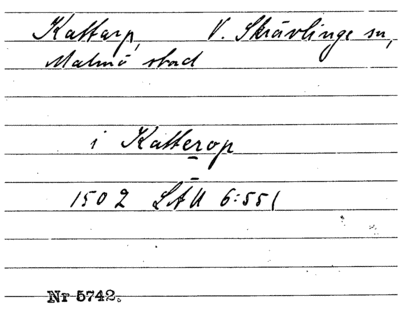 Kattarp, V. Skrävlinge sn,
Malmö stad
i Katterop
1502 LAU 6:551
Nr 5742.